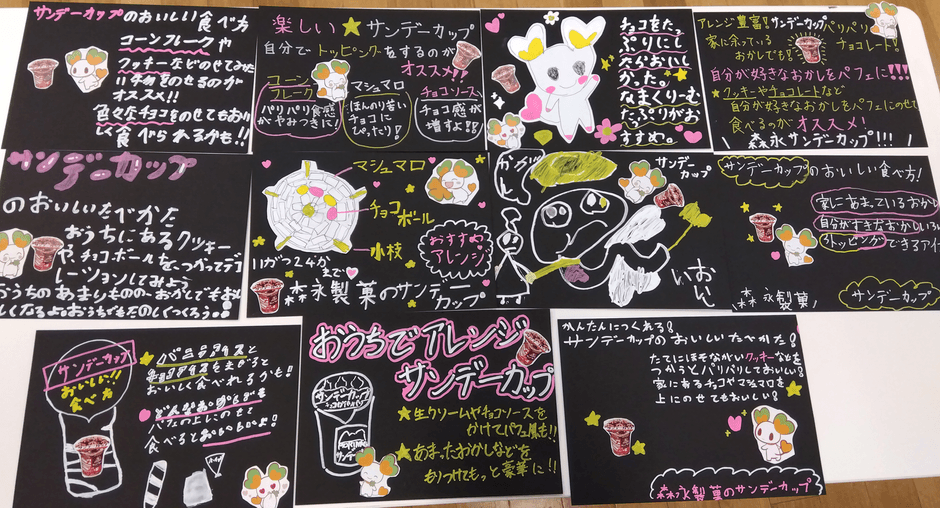 サンデーカップのおいしい食べ方
コーンフレークや
クッキーなどのせてみた
のせるのが
オススメ!!
色々なチョコをのせてもおい
しく食べられるかも!!
楽しい★サンデーカップ
自分でトッピングをするのが
オススメ!!
コーン
フレーク
パリパリ食感
がやみつきに!
マシュマロ
ほんのり甘い
チョコに
ぴったり!
チョコソース
チョコ感が
増すよ!!
チョコをたっ
ぷりにし
たらおいし
かった。
なまくりーむ
たっぷりがお
すすめ。
アレンジ豊富!サンデーカップ
家に余っている
おかしでも!
パリパリ
チョコレート!
自分が好きなおかしをパフェに!!!
★クッキーやチョコレートなど
自分が好きなおかしをパフェにのせて
食べるのがオススメ!
森永サンデーカップ!!!
サンデーカップ
のおいしいたべかた
おうちにあるクッキー
や、チョコボールを、つかってデコ
レーションしてみよう
おうちのあまりものの、おかしでもおい
しくなるよ。おうちでもたのしくつくろう。!
マシュマロ
チョコ
ボール
小枝
おすすめ
アレンジ
11がつ24か
まで
森永製菓のサンデー
カップ
サンデー
カップ
サンデーカップのおいしい食べ方!
家にあまっているおかし
自分がすきなおかし
トッピングできるアイ
森永製菓!
サンデーカップ
サンデーカップ
おいしい!!
食べ方
バニラアイスと
おいしく食べれるかも!
どんなおかしでも
パフェの上にのせて
食べるとおいしいよ!
おうちでアレンジ
サンデーカップ
サンデーカップ
★生クリームやチョコソースを
かけてパフェ風も!!
★あまったおかしなどを
もりつけてもっと豪華に!!
かんたんにつくれる!
サンデーカップのおいしいたべかた!
たてにほそながいクッキーなどを
つかうとパリパリしておいしい!
家にあるチョコやマシュマロを
上にのせてもおいしい!
森永製菓のサンデーカップ